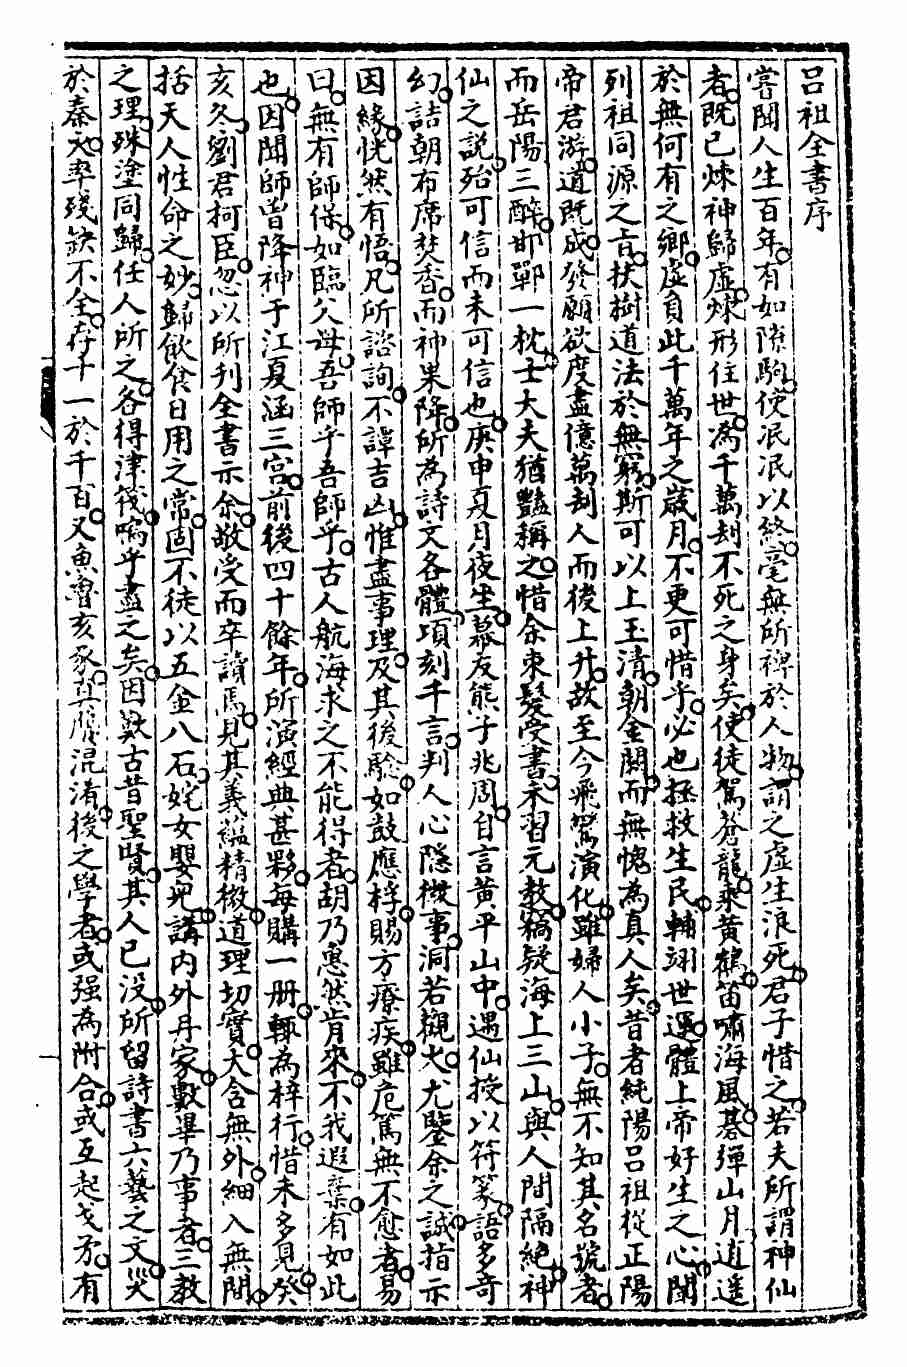 呂祖全書序
嘗聞人生百年。有如隙駒。使泯泯以終。毫無所裨於人物。謂之虛生浪死。君子惜之。若夫所謂神仙
者。既已煉神歸虛。煉形住世。為千萬刦不死之身矣。使徒駕蒼龍。乘黃鶴。笛嘯海風。碁彈山月。逍遥
於無何有之鄉。虛負此千萬年之歲月。不更可惜乎。必也拯救生民。輔翊世運。體上帝好生之心。闡
列祖同源之旨。扶樹道法於無窮。斯可以上玉清。朝金闕。而無愧為真人矣。昔者純陽呂祖從正陽
帝君游。道既成。發願欲度盡億萬刦人而後上升。故至今飛鸞演化。雖婦人小子。無不知其名號者。
而岳陽三醉。邯鄲一枕。士大夫猶豔稱之。惜余束髮受書。未習元教。竊疑海上三山。與人間隔絕。神
仙之說。殆可信而未可信也。庚申夏月夜坐。幕友熊子兆周。自言黃平山中。遇仙授以符篆。語多奇
幻。詰朝布席焚香。而神果降。所為詩文各體。項刻千言。判人心隱微事。洞若觀火。尤鑒余之誠。指示
因緣。恍然有悟。凡所諮詢。不譚吉凶。惟盡事理。及其後驗。如鼓應桴。賜方療疾。雖危篤無不愈者。易
曰。無有師保。如臨父母。吾師乎吾師乎。古人航海求之不能得者。胡乃惠然肯來。不我遐棄。有如此
也。因聞師曾降神于江夏涵三宮。前後四十餘年。所演經典甚夥。每購一册。輒為梓行。惜未多見。癸
亥冬。劉君柯臣。忽以所刋全書示余。敬受而卒讀焉。見其義蘊精微。道理切實。大含無外。細入無間。
括天人性命之妙。歸飲食日用之常。固不徒以五金八石。姹女嬰兒。講內外丹家數。畢乃事者。三教
之理。殊塗同歸。任人所之。各得津筏。嗚乎盡之矣。因歎古昔聖賢。其人已沒。所留詩書六藝之文。災
於秦火。率殘缺不全。存十一於千百。又魚魯亥豕。真贋混淆。後之學者。或强為附合。或互起戈矛。有